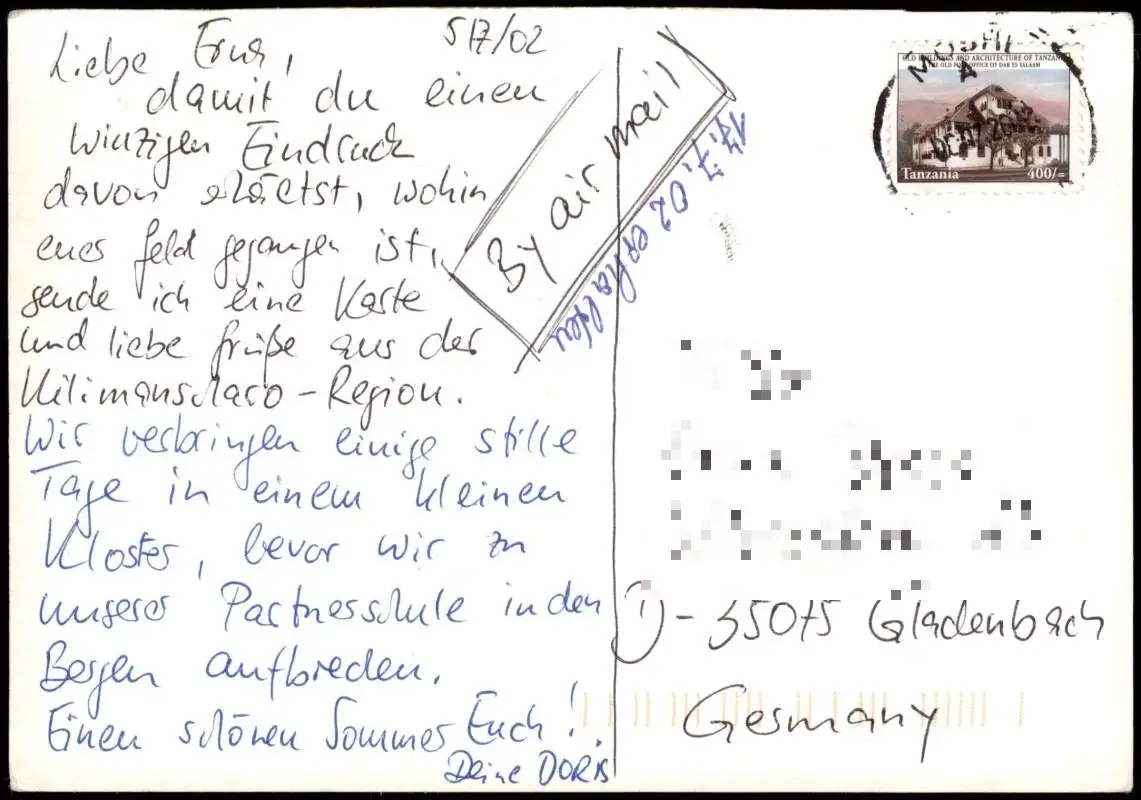 5/7/02
Liebe Erna,
damit du einen
winzigen Eindruck
davon erhältst, wohin
euer Geld gegangen ist,
sende ich eine Karte
und liebe Grüße aus der
Kilimanscharo-Region.
Wir verbringen einige stille
Tage in einem kleinen
Kloster, bevor wir zu
unserer Partnerschule in den
Bergen aufbrechen.
Einen schönen Sommer Euch!
Deine DORIS
By air mail
17.7.02 erhalten
MOSHI
A
OLD BUILDINGS AND ARCHITECTURE OF TANZANIA
THE OLD POST OFFICE OF DAR ES SALAAM
Tanzania 400/=
D-35075 Gladenbach
Germany